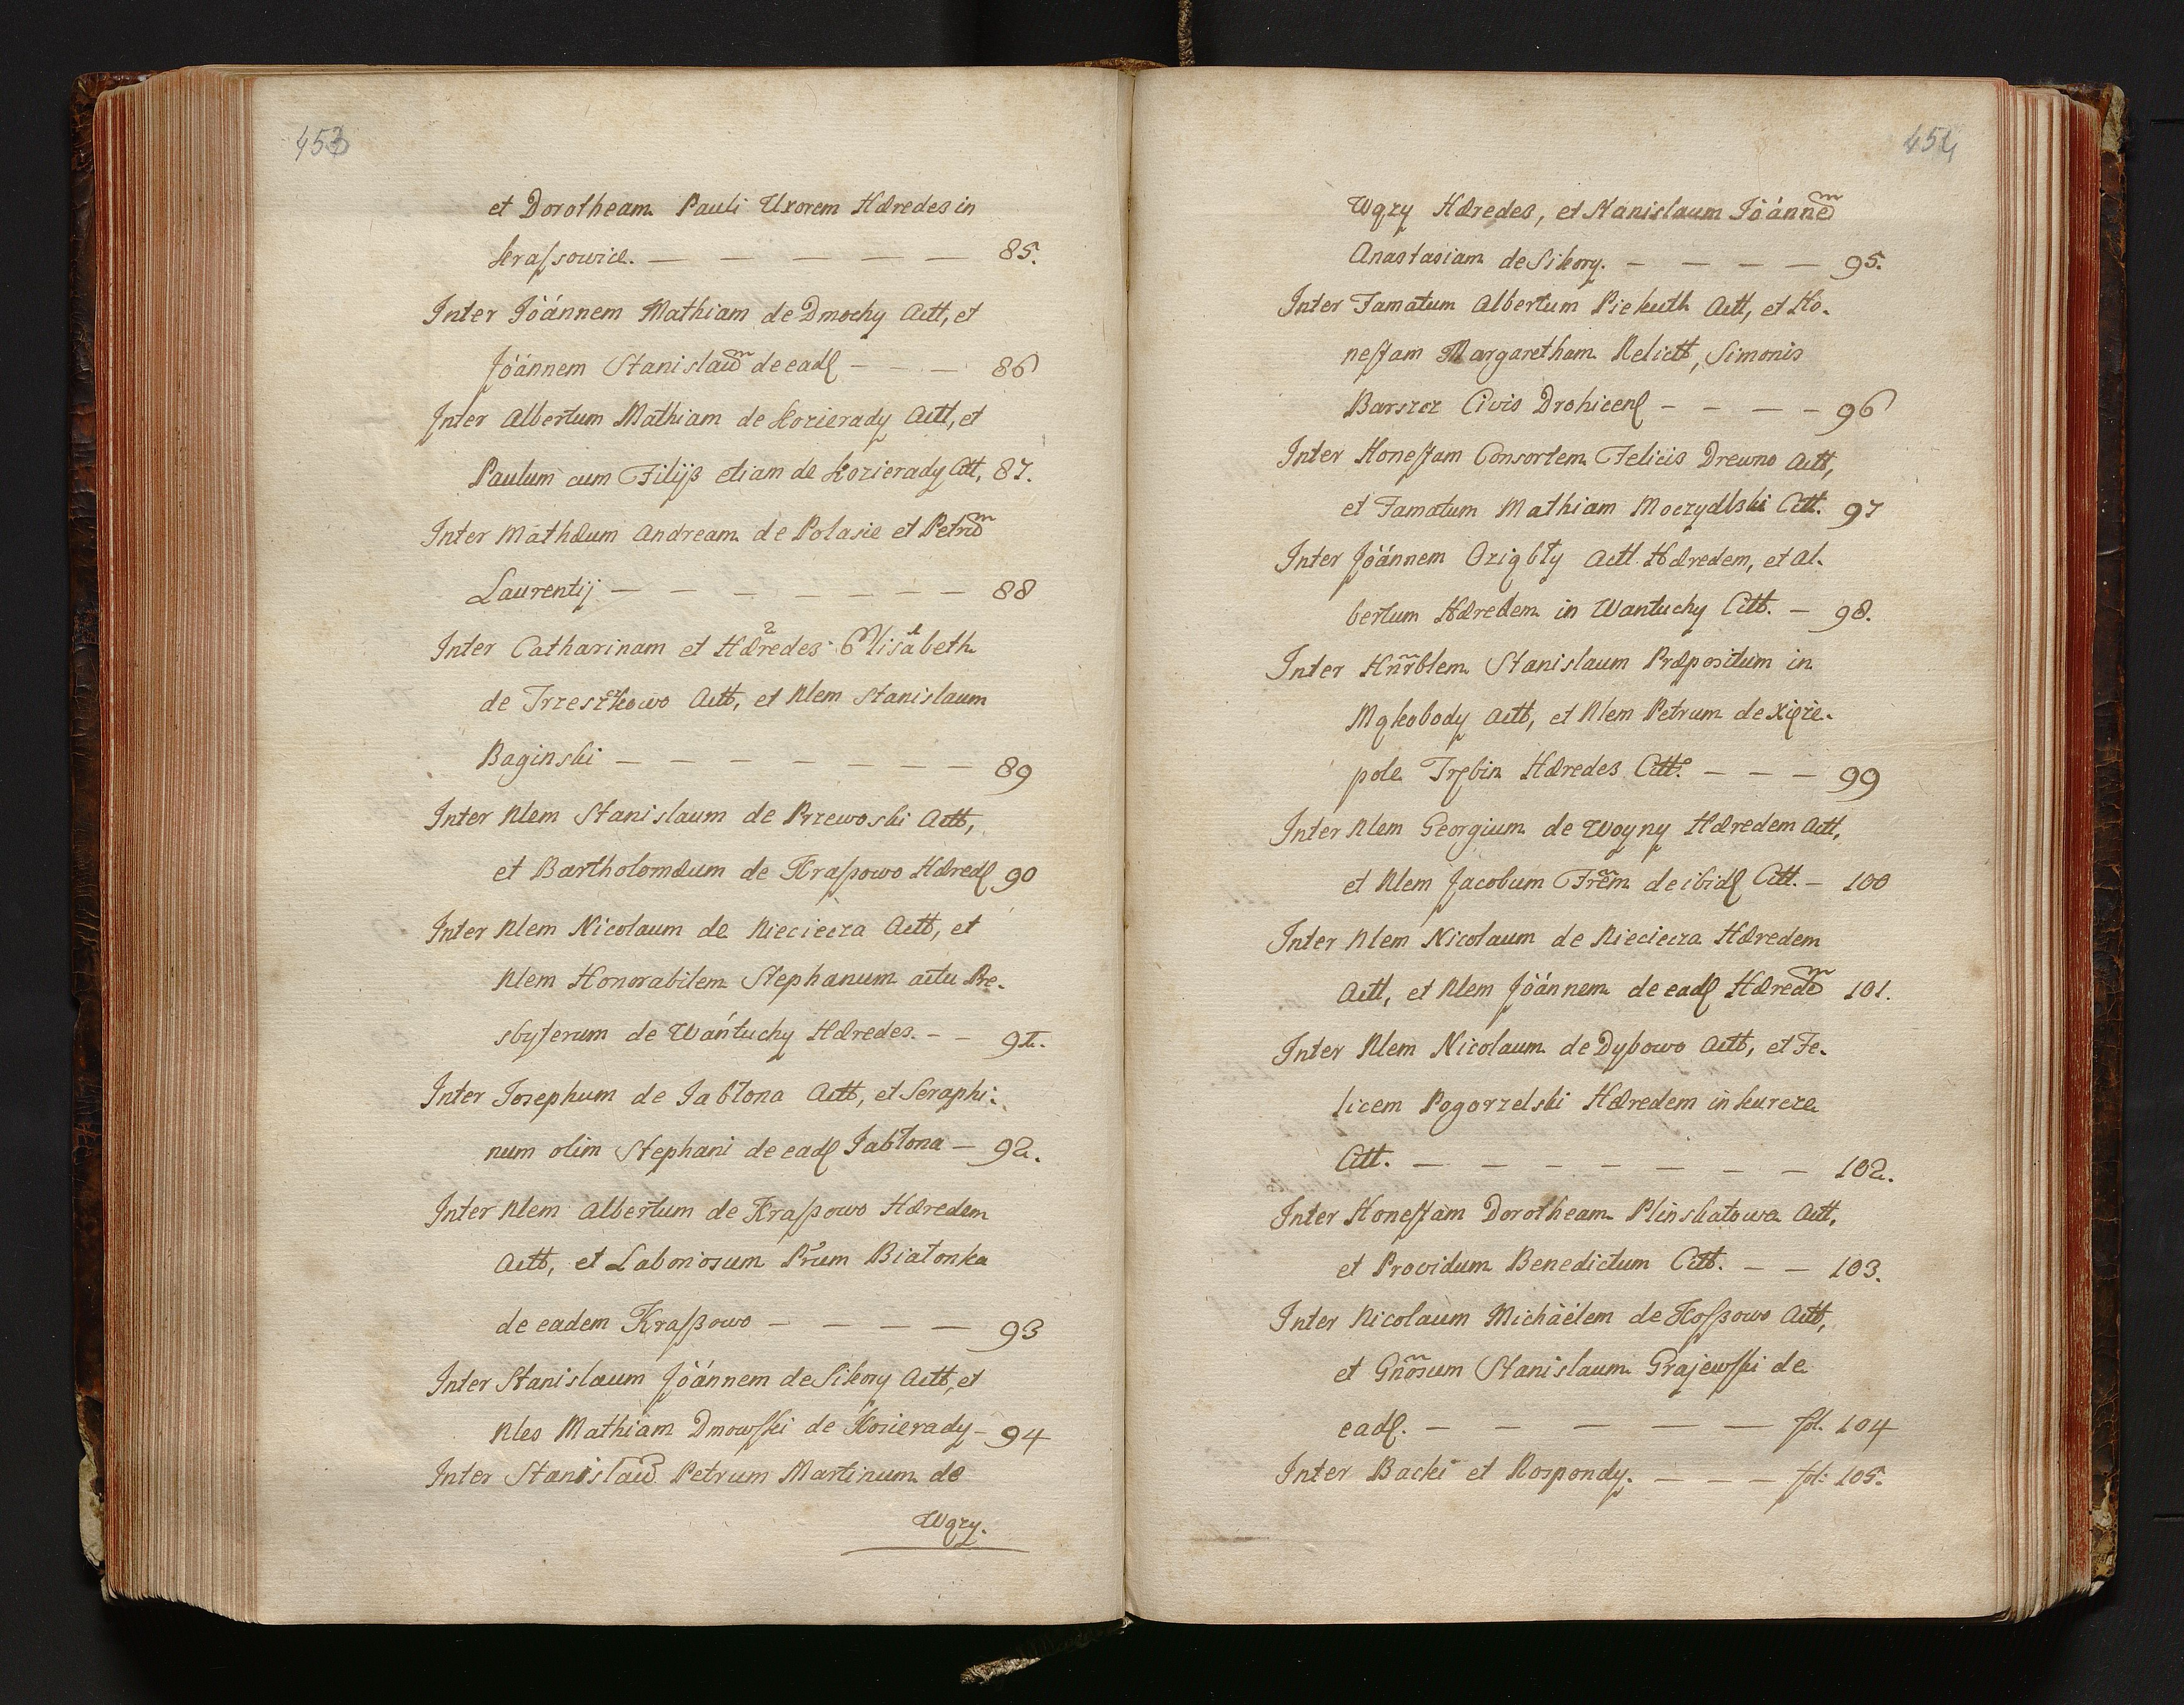 453
et Dorotheam Pauli Uxorem Hæredes in
Krassowice. — — — — — — 85.
Inter Jòánnem Mathiam de Dmochy Actt, et
Jòánnem Stanislaum̄ de eadꝭ — — — 86
Inter Albertum Mathiam de Kozierady Actt, et
Paulum cum Filijs etiam de Kozierady Citt, 87.
Inter Mathæum Andream de Polasie et Petrum̄
Laurentij — — — — — — — 88
Inter Catharinam et Hæredes Elisabeth
de Trzeszkowo Actt, et Nlem Stanislaum
Baginski — — — — — — — 89
Inter Nlem Stanislaum de Przewoski Actt,
et Bartholomæum de Krassowo Hæredꝭ 90
Inter Nlem Nicolaum de Nieciecza Actt, et
Nlem Honorabilem Stephanum actu Pre-
sbyterum de Wańtuchy Hæredes. — — 91.
Inter Josephum de Jabłona Actt, et Seraphi-
num olim Stephani de eadꝭ Jabłona — 92.
Inter Nlem Albertum de Krassowo Hæredem
Actt, et Laboriosum Prum Białonka
de eadem Krassowo — — — — 93
Inter Stanislaum Jòánnem de Sikory Actt, et
Nles Mathiam Dmowski de Kozierady — 94
Inter Stanislaum̄ Petrum Martinum de
Wązy.
454
Wązy Hæredes, et Stanislaum Jòánnem̄
Anastasiam de Sikory. — — — — 95.
Inter Famatum Albertum Piekuth Actt, et Ho-
nestam Margaretham Relictt, Simonis
Barszcz Civis Drohicenꝭ — — — — 96
Inter Honestam Consortem Felicis Drewno Actt,
et Famatum Mathiam Moczydlski Citt. 97
Inter Jòánnem Dziąbły Actt Hæredem, et Al-
bertum Hæredem in Wantuchy Citt. — 98.
Inter Hnr̃blem Stanislaum Præpositum in
Mąkobody Actt, et Nlem Petrum de Xięże-
pole Trębin Hæredes Citt. — — — 99
Inter Nlem Georgium de Woyny Hæredem Actt,
et Nlem Jacobum Frem̃ de ibidꝭ Citt. — 100
Inter Nlem Nicolaum de Niecieza Hæredem
Actt, et Nlem Jòánnem de eadꝭ Hæredem̄ 101.
Inter Nlem Nicolaum de Dybowo Actt, et Fe-
licem Pogorzelski Hæredem in Kurcze
Citt. — — — — — — — 102.
Inter Honestam Dorotheam Plinskatowa Actt,
et Providum Benedictum Citt. — — 103.
Inter Nicolaum Michàélem de Kossowo Actt,
et Gnõsum Stanislaum Grajewski de
eadꝭ. — — — — — fol. 104
Inter Backi et Rospondy. — — — fol: 105.